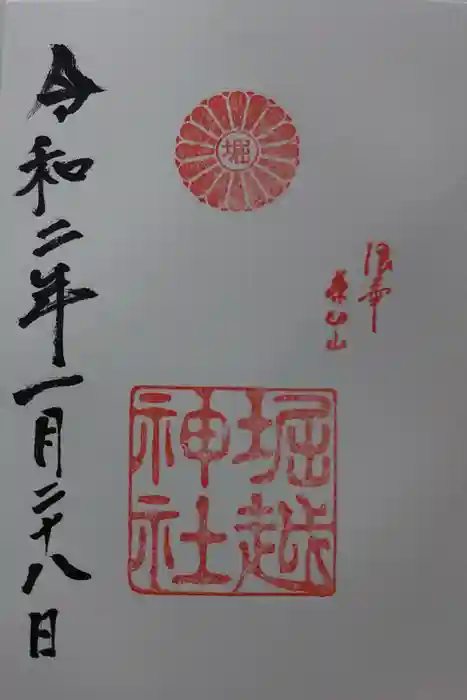 堀
浪華
堀越
神社
令和二年一月二十八日